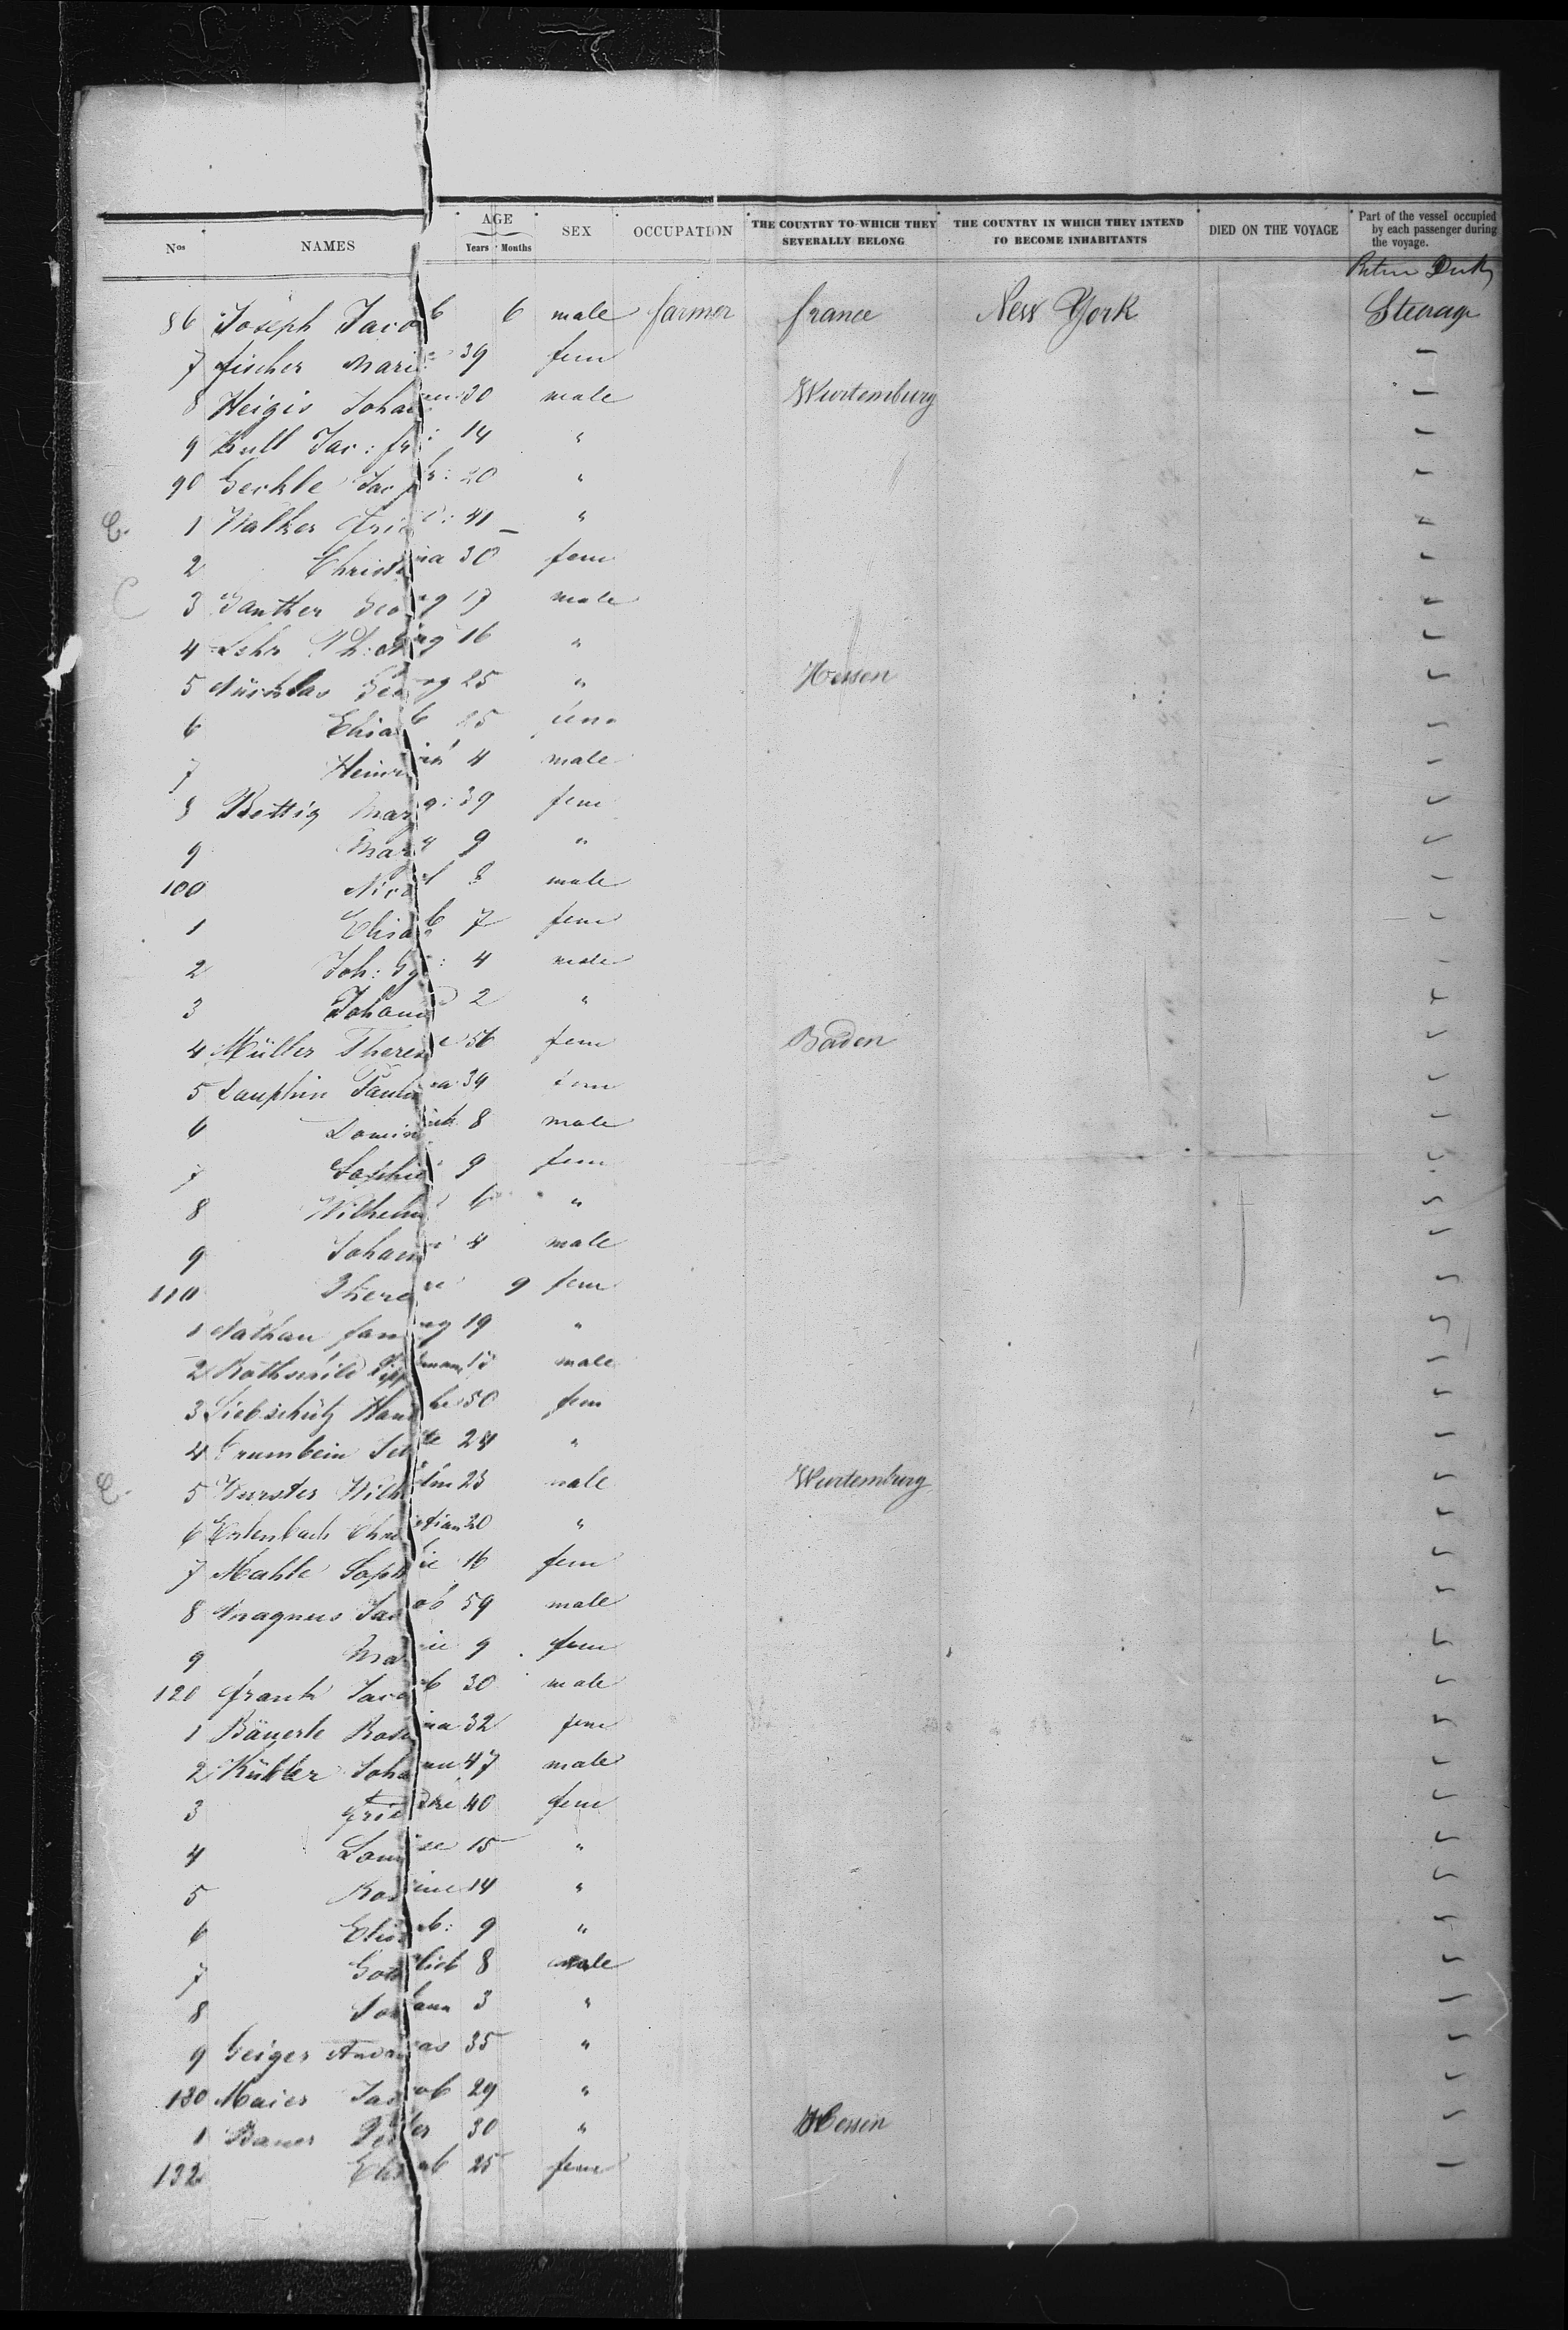 Nos NAMES AGE Years Months SEX OCCUPATION THE COUNTRY TO WHICH THEY SEVERALLY BELONG THE COUNTRY IN WHICH THEY INTEND TO BECOME INHABITANTS DIED ON THE VOYAGE Part of the vessel occupied by each passenger during the voyage.
86 Joseph Jacob 6 male farmer france New York Steerage
7 fischer Marie 39 fem
8 Heigis Johann 30 male Wurtemburg
9 Kull Jac: fr: 14 "
90 Geckle Jac fr: 20 "
C. 1 Walker 41 "
2 Christina 30 fem
C 3 Ganther Georg 17 male
4 16 "
5 Georg 25 " Hessen
6 Elisab 25 fem
7 Heinrich 4 male
8 Bettig Marg: 39 fem
9 9 "
100 Nicol 8 male
1 Elisab 7 fem
2 Joh: Gg: 4 male
3 Johann 2 "
4 Müller Therese 56 fem Baden
5 Dauphin Paulina 39 fem
6 Dominick 8 male
7 Sophie 9 fem
8 6 "
9 Johann 4 male
110 9 fem
1 Nathan fanny 19 "
2 Rothschild male
3 Liebschütz 50 fem
4 Grumbein 24 "
C. 5 Wurster Wilhelm 23 male Wurtemburg
6 Christian 20 "
7 Mahle Sophie 16 fem
8 Magnus Jacob 59 male
9 Marie 9 fem
120 frank Jacob 30 male
1 Bäuerle Rosina 32 fem
2 Kübler Johann 47 male
3 40 fem
4 Louise 15 "
5 Rosine 14 "
6 Elisab: 9 "
7 Gottlieb 8 male
8 Johann 3 "
9 Geiger Andreas 35 "
130 Maier Jacob 29 "
1 Bauer Peter 30 " Hessen
132 Elisab 25 fem